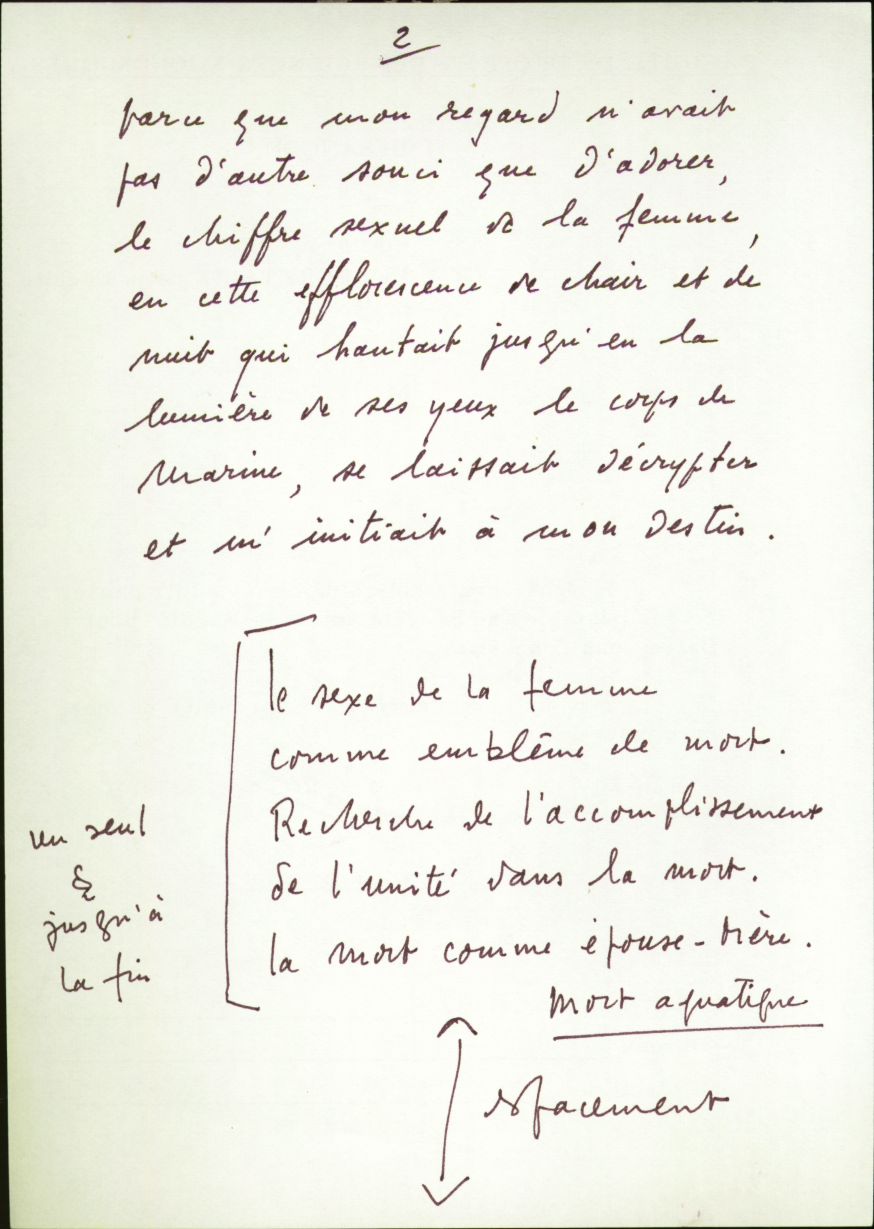 2
parce que mon regard n'avait
pas d'autre souci que d'adorer,
le chiffre sexuel de la femme,
en cette efflorescence de chair et de
nuit qui hantait jusqu'en la
lumière de ses yeux le corps de
Marine, se laissait décrypter
et m'initiait à mon destin.
le sexe de la femme
comme emblême de mort.
Recherche de l'accomplissement
de l'unité dans la mort.
la mort comme épouse-mère.
mort aquatique
un seul
§
jusqu'à
la fin
espacement